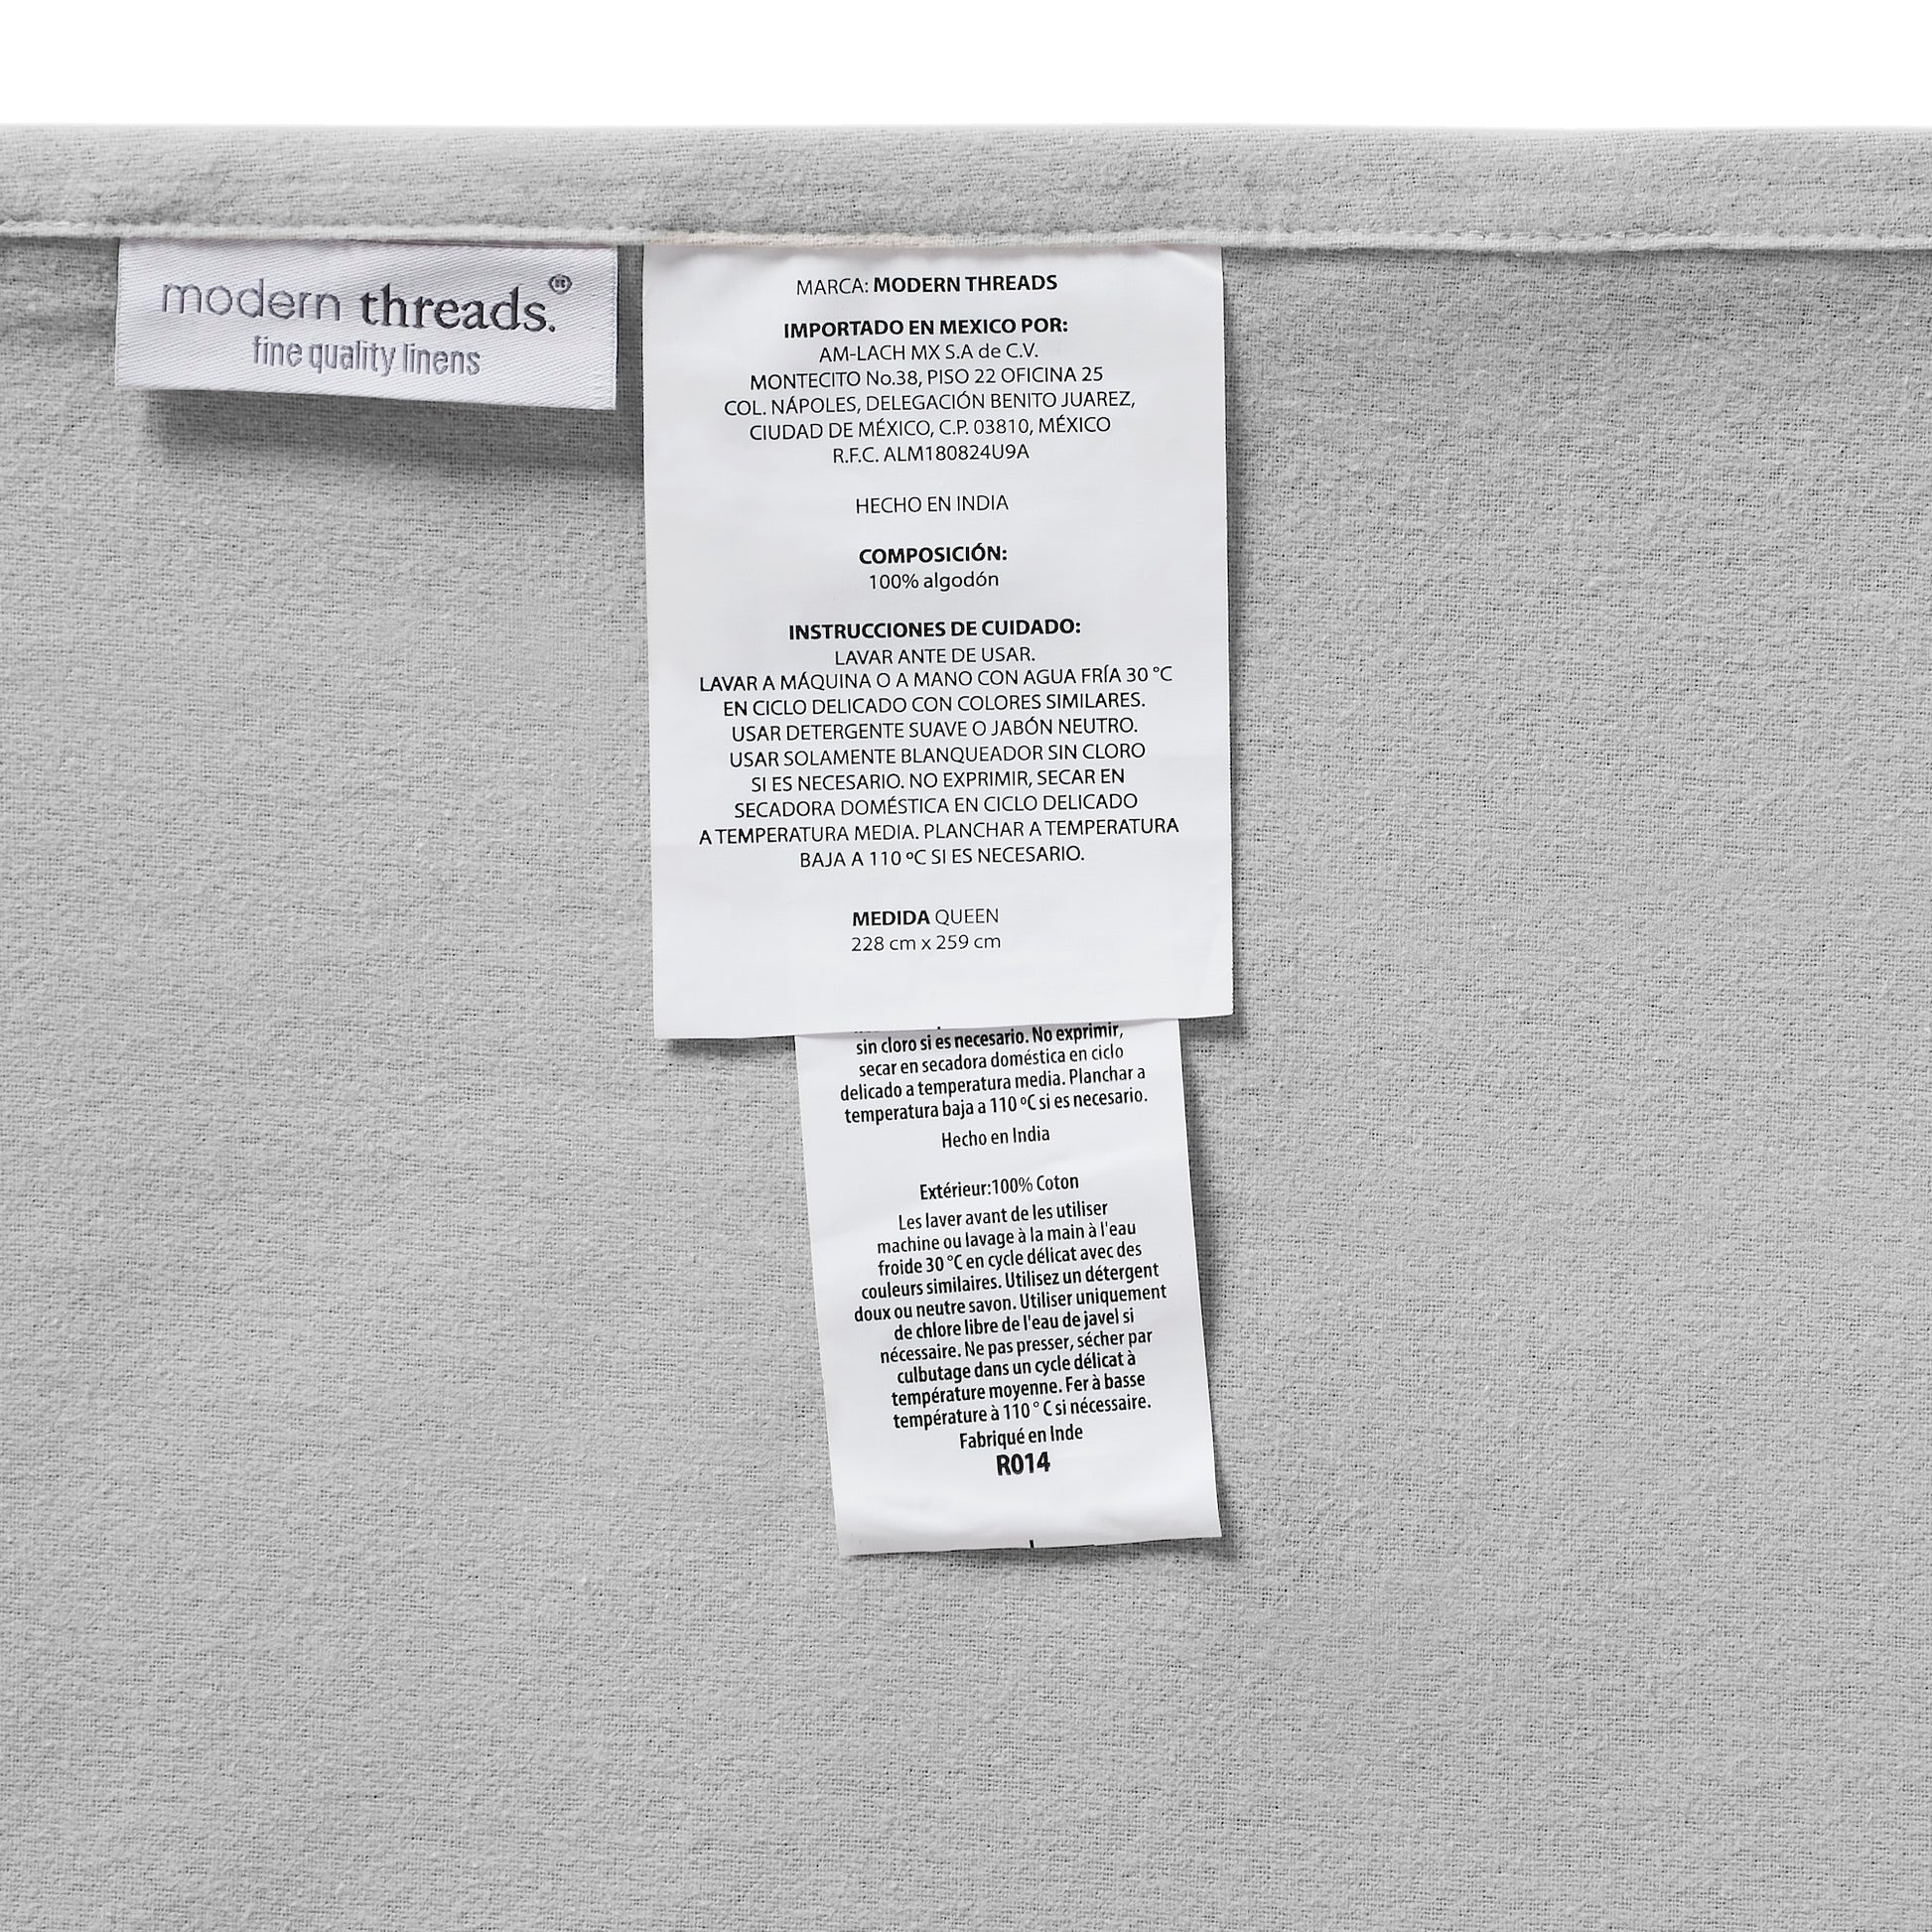 modern threads.®
fine quality linens
MARCA: MODERN THREADS
IMPORTADO EN MEXICO POR:
AM-LACH MX S.A de C.V.
MONTECITO No.38, PISO 22 OFICINA 25
COL. NÁPOLES, DELEGACIÓN BENITO JUAREZ,
CIUDAD DE MÉXICO, C.P. 03810, MÉXICO
R.F.C. ALM180824U9A
HECHO EN INDIA
COMPOSICIÓN:
100% algodón
INSTRUCCIONES DE CUIDADO:
LAVAR ANTE DE USAR.
LAVAR A MÁQUINA O A MANO CON AGUA FRÍA 30 °C
EN CICLO DELICADO CON COLORES SIMILARES.
USAR DETERGENTE SUAVE O JABÓN NEUTRO.
USAR SOLAMENTE BLANQUEADOR SIN CLORO
SI ES NECESARIO. NO EXPRIMIR, SECAR EN
SECADORA DOMÉSTICA EN CICLO DELICADO
A TEMPERATURA MEDIA. PLANCHAR A TEMPERATURA
BAJA A 110 ºC SI ES NECESARIO.
MEDIDA QUEEN
228 cm x 259 cm
sin cloro si es necesario. No exprimir,
secar en secadora doméstica en ciclo
delicado a temperatura media. Planchar a
temperatura baja a 110 ºC si es necesario.
Hecho en India
Extérieur:100% Coton
Les laver avant de les utiliser
machine ou lavage à la main à l'eau
froide 30 °C en cycle délicat avec des
couleurs similaires. Utilisez un détergent
doux ou neutre savon. Utiliser uniquement
de chlore libre de l'eau de javel si
nécessaire. Ne pas presser, sécher par
culbutage dans un cycle délicat à
température moyenne. Fer à basse
température à 110 ° C si nécessaire.
Fabriqué en Inde
R014